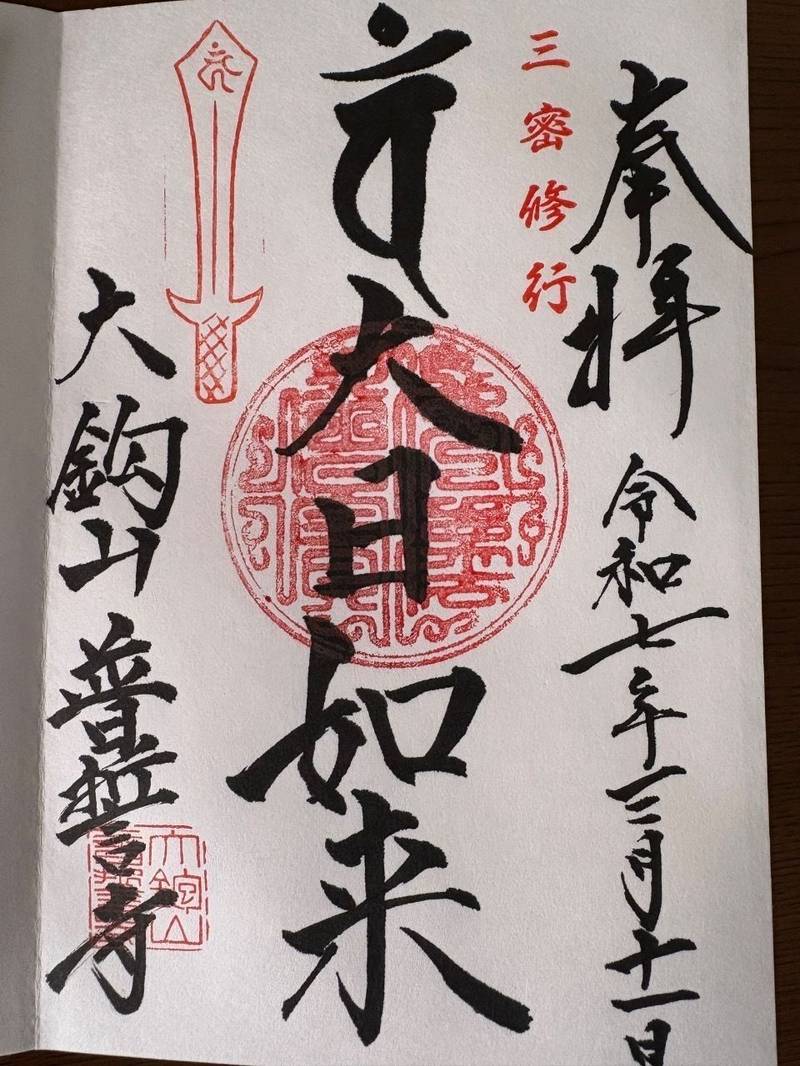 奉拝
令和七年三月十一日
三密修行
大日如来
大鈎山
普誓寺